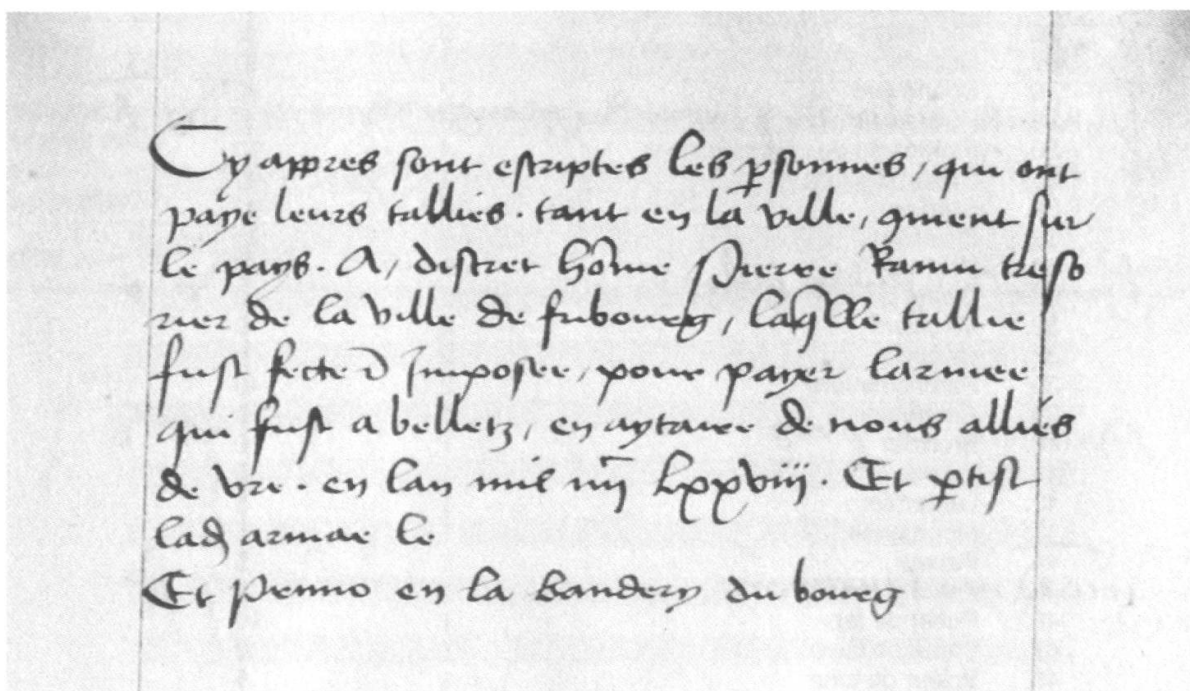 Cy appres sont escriptes les psonnes / qui ont
paye leurs tallies . tant en la ville / 9ment sur
le pays . A / discret home Pierre Ramu treso
rier de la ville de fribourg / laqlle tallie
fust fecte Imposee / pour payer larmee
qui fust a belletz / en aytaire de nous alliés
de vre . en lan mil iiij Lxxviij . Et ptist
lad armae le
Et Primo en la Bandery du bourg